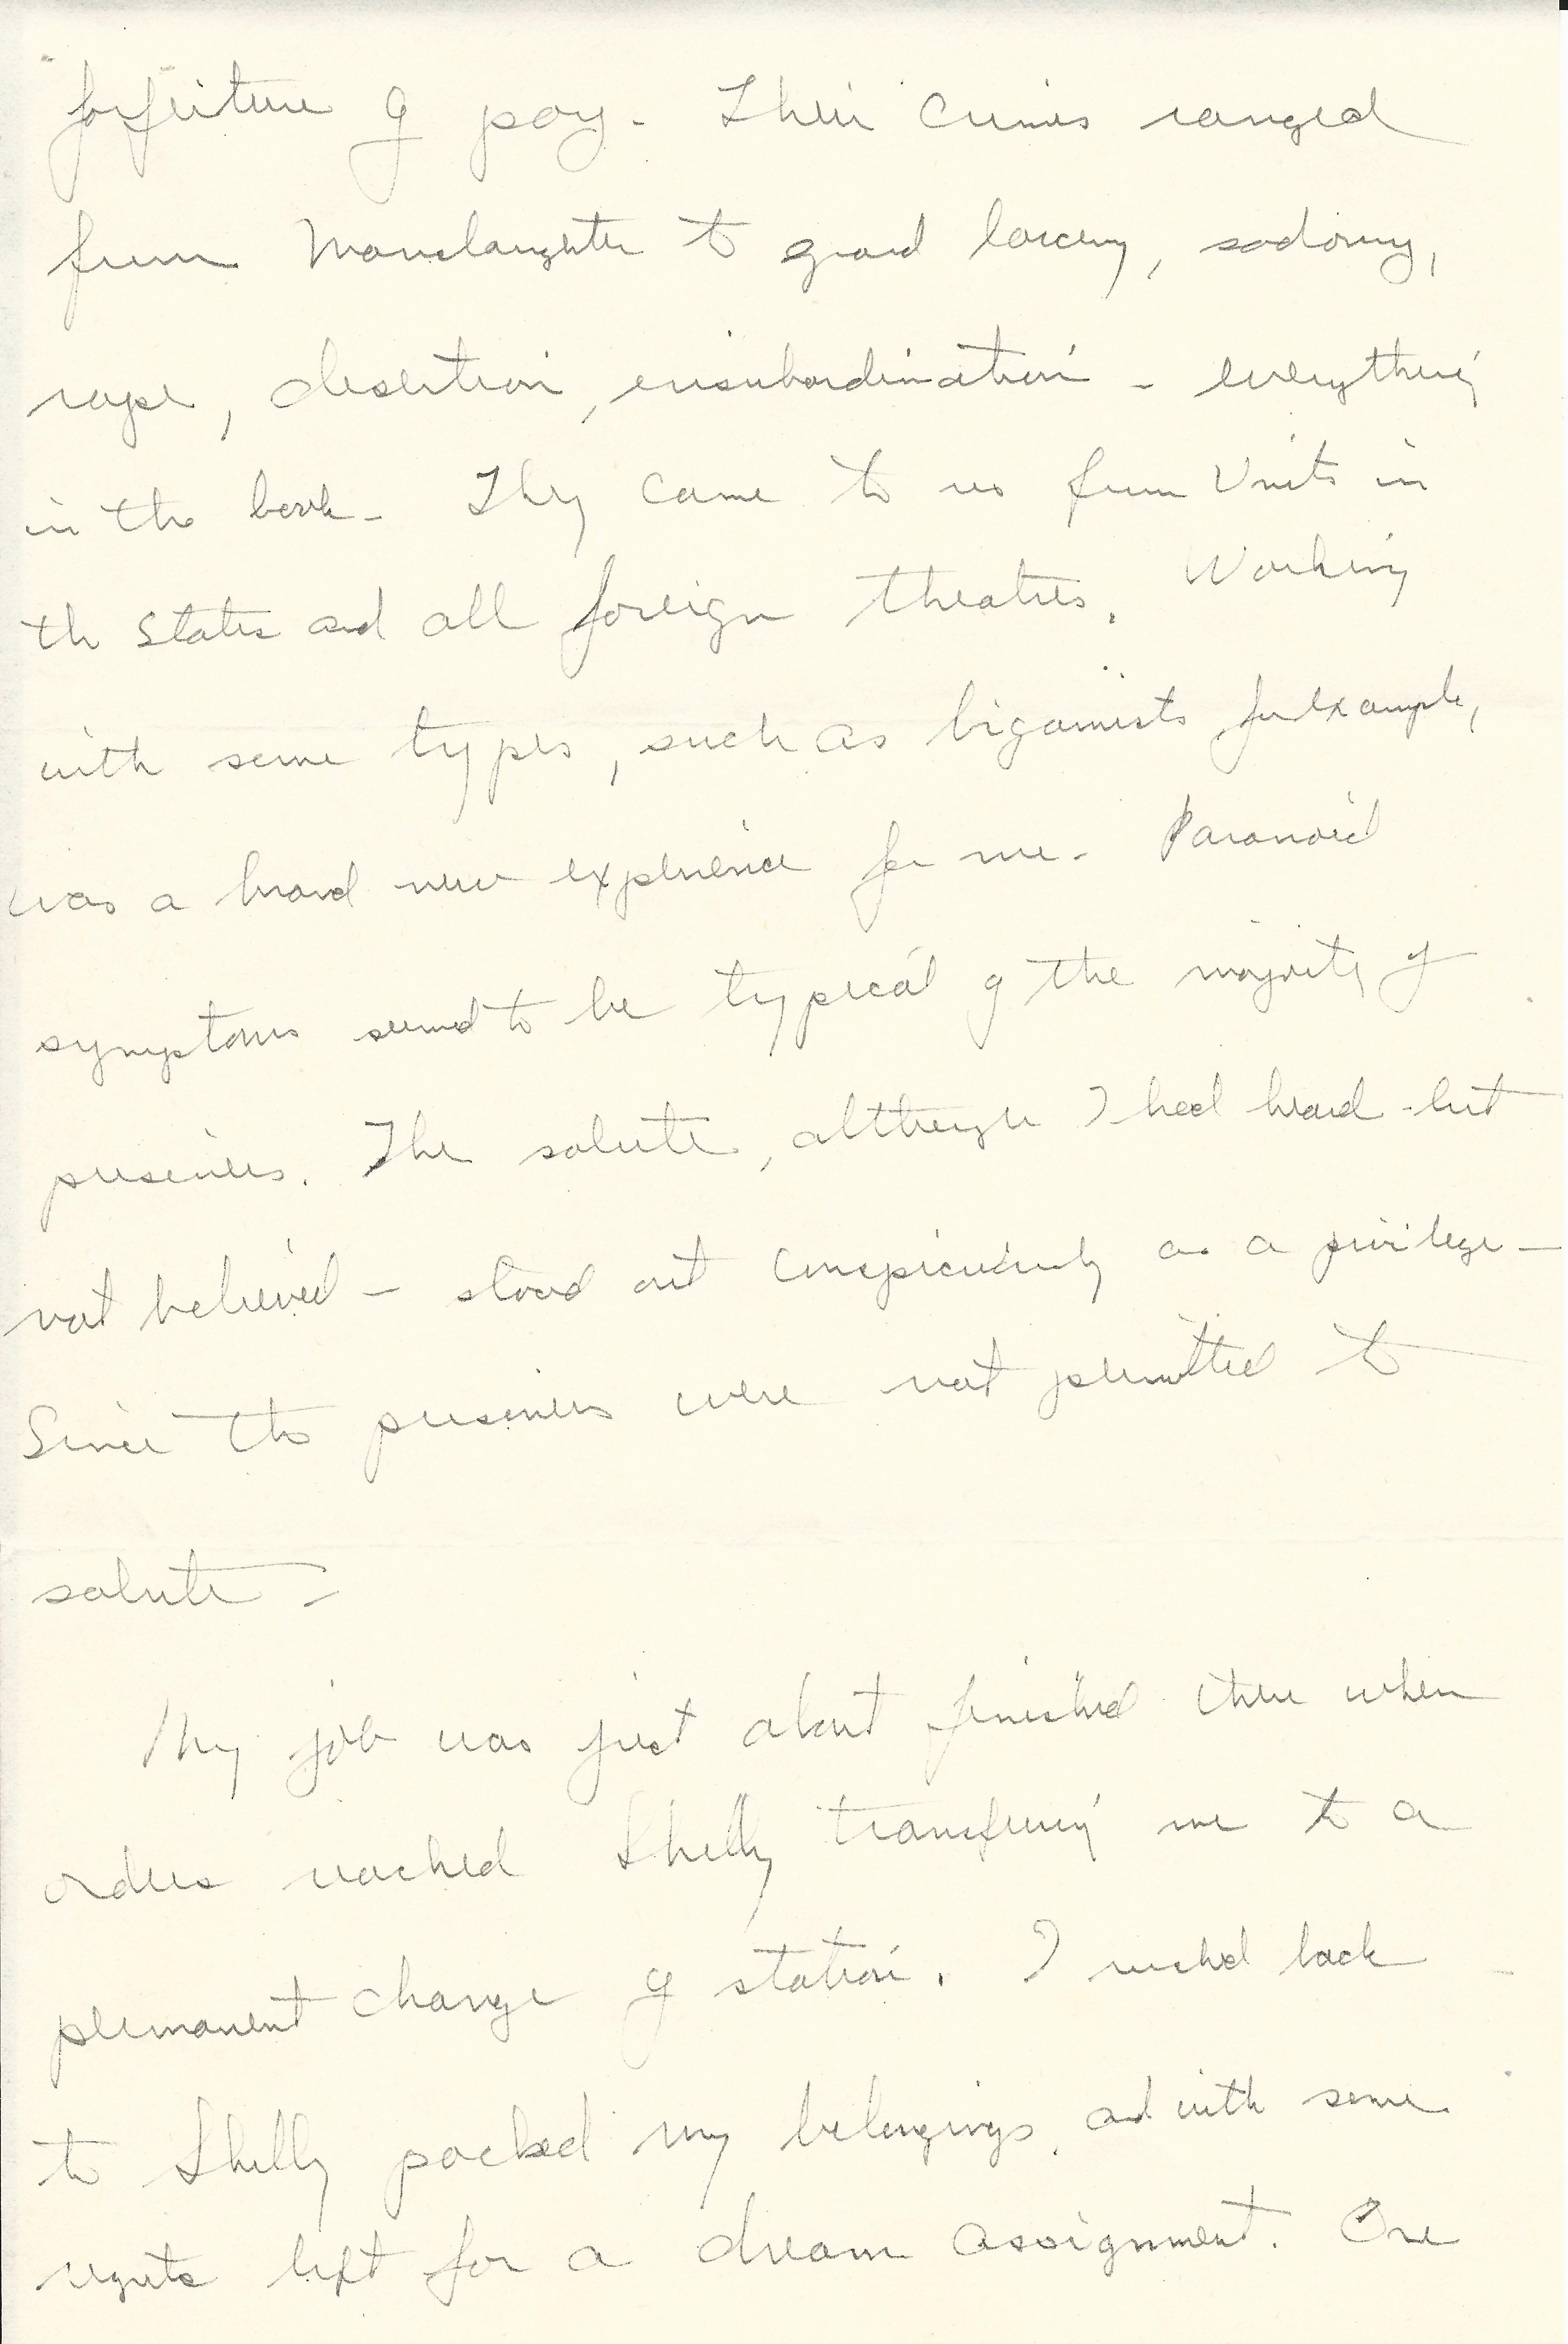 forfeiture of pay. Their crimes ranged
from Manslaughter to grand larceny, sodomy,
rape, desertion, insubordination - everything
in the book. They came to us from Units in
the States and all foreign theatres. Working
with some types, such as bigamists for example,
was a brand new experience for me. Paranoid
symptoms seemed to be typical of the majority of
prisoners. The salute, although I had heard - but
not believed - stood out conspicuously as a privilege -
Since the prisoners were not permitted to
salute -
My job was just about finished there when
orders reached Shelby transferring me to a
permanent change of station. I rushed back
to Shelby packed my belongings, and with some
regrets left for a dream assignment. One